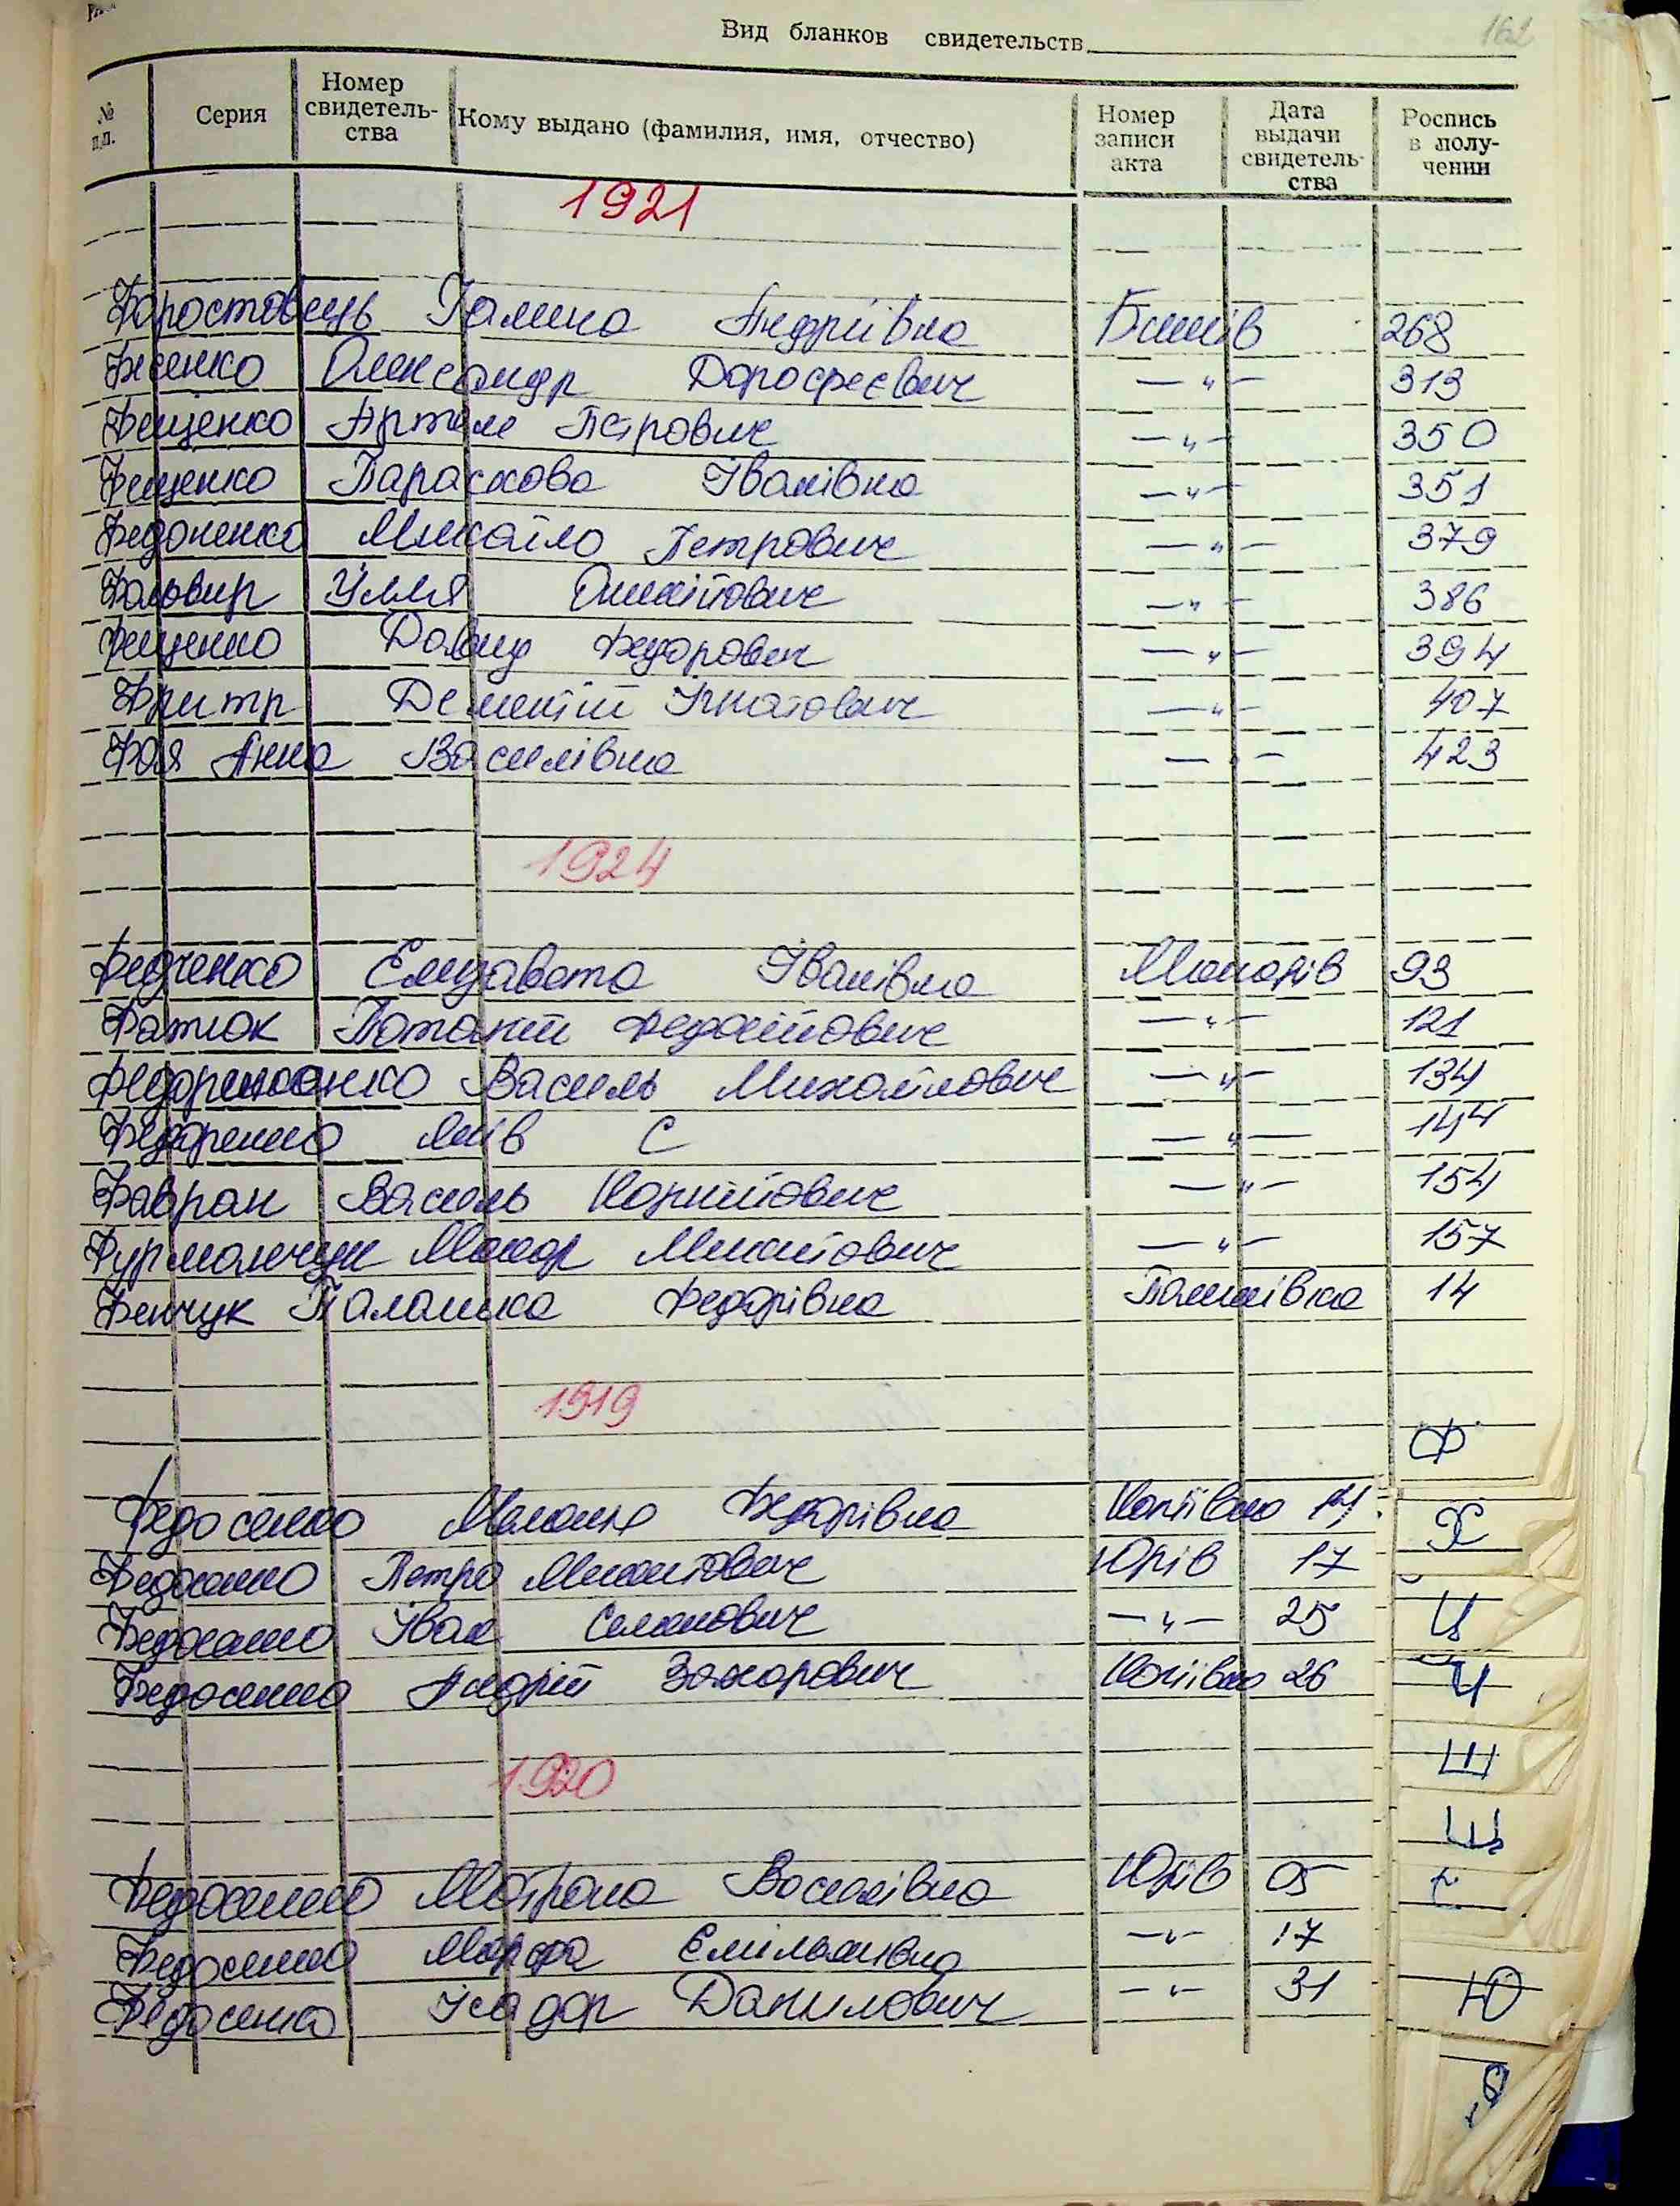 162
Вид бланков свидетельств
№ п.п. Серия Номер свидетель-ства Кому выдано (фамилия, имя, отчество) Номер записи акта Дата выдачи свидетель-ства Роспись в полу-чении
1921
Форостовець Галина Андріївна Бишів 268
Фесенко Олександр Доросфеєвич —„— 313
Фещенко Артем Петрович —„— 350
Фещенко Парасхова Іванівна —„— 351
Федоненко Михайло Петрович —„— 379
Фольвир Ілля Оникійович —„— 386
Фещенко Давид Федорович —„— 394
Фритр Дементій Ігнатович —„— 407
Фоя Анна Василівна —„— 423
1924
Федченко Елизавета Іванівна Макарів 93
Фатюк Потапій Федотович —„— 121
Василь Михайлович —„— 134
Федоренко Яків С —„— 144
Фавран Василь Корнійович —„— 154
Фурманчук Макар Микитович —„— 157
Фенчук Палажка Федорівна Пашківка 14
1919
Федосенко Меланья Федорівна Копіївка 14
Федосенко Петро Микитович Юрів 17
Федосенко Іван Семенович —„— 25
Федосенко Андрій Захарович Копіївка 26
1920
Федосенко Мотрона Василівна Юрів 05
Федосенко Марфа Ємільянівна —„— 17
Федосенко Ісадор Данилович —„— 31
Ф
Х
Ц
Ч
Ш
Щ
Ю